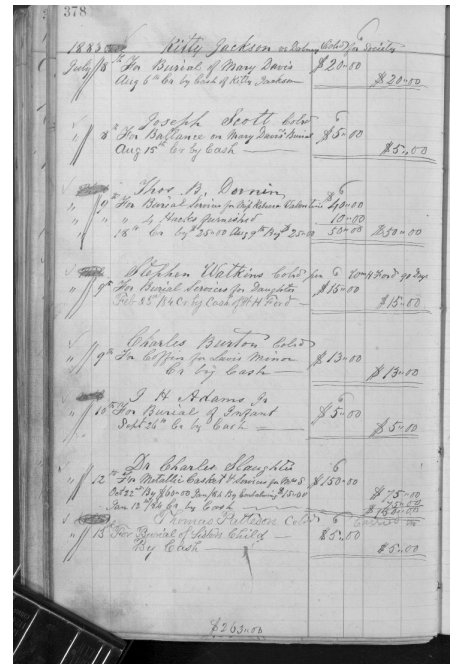 378
1883 Kitty Jackson or Cold for Society
July 8th For Burial of Mary Davis $20.00
Aug 6th Cr by Cash of Kitty Jackson $20.00
Joseph Scott Cold 6
" 8th For Ballance on Mary Davis Burial $5.00
Aug 15th Cr by Cash — $5.00
Thos. B. Dornin 6
" 9th For Burial Services for Rebecca Valentine $40.00
" " " 4 Hacks furnished 10.00
" 18th Cr by $25.00 Aug 9th By $25.00 50.00 $50.00
Stephen Watkins Cold per 6 90 Days
" 9th For Burial Services for Daughter $15.00
Feb 25th /84 Cr by Cash of H H Ford — $15.00
Charles Burton Cold
" 9th For Coffin for Levis Minor $13.00
Cr by Cash — $13.00
J H Adams Jr 6
" 10th For Burial of Infant $5.00
Sept 26th Cr by Cash — $5.00
Dr Charles Slaughter 6
" 12th For Metallic Casket & Services for Mrs S $150.00
Oct 22nd By $60.00 By $15.00 $75.00
Jan 12th /84 Cr by Cash — 75.00
$150.00
Thomas Pettison Cold
" 13th For Burial of Sisters Child — $5.00
By Cash $5.00
$263.00